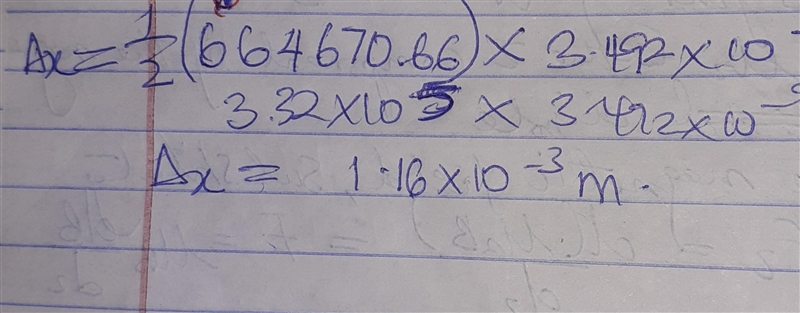 Δx = 1/2 (664670.66) × 3.492 × 10-
3.32 × 10^5 × 3.492 × 10^-9
Δx = 1.16 × 10^-3 m.